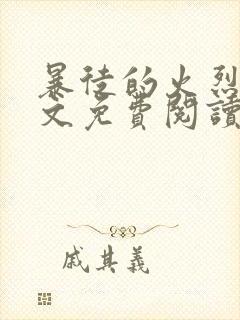 暴徒的火烈
文免費閱讀
戚其義